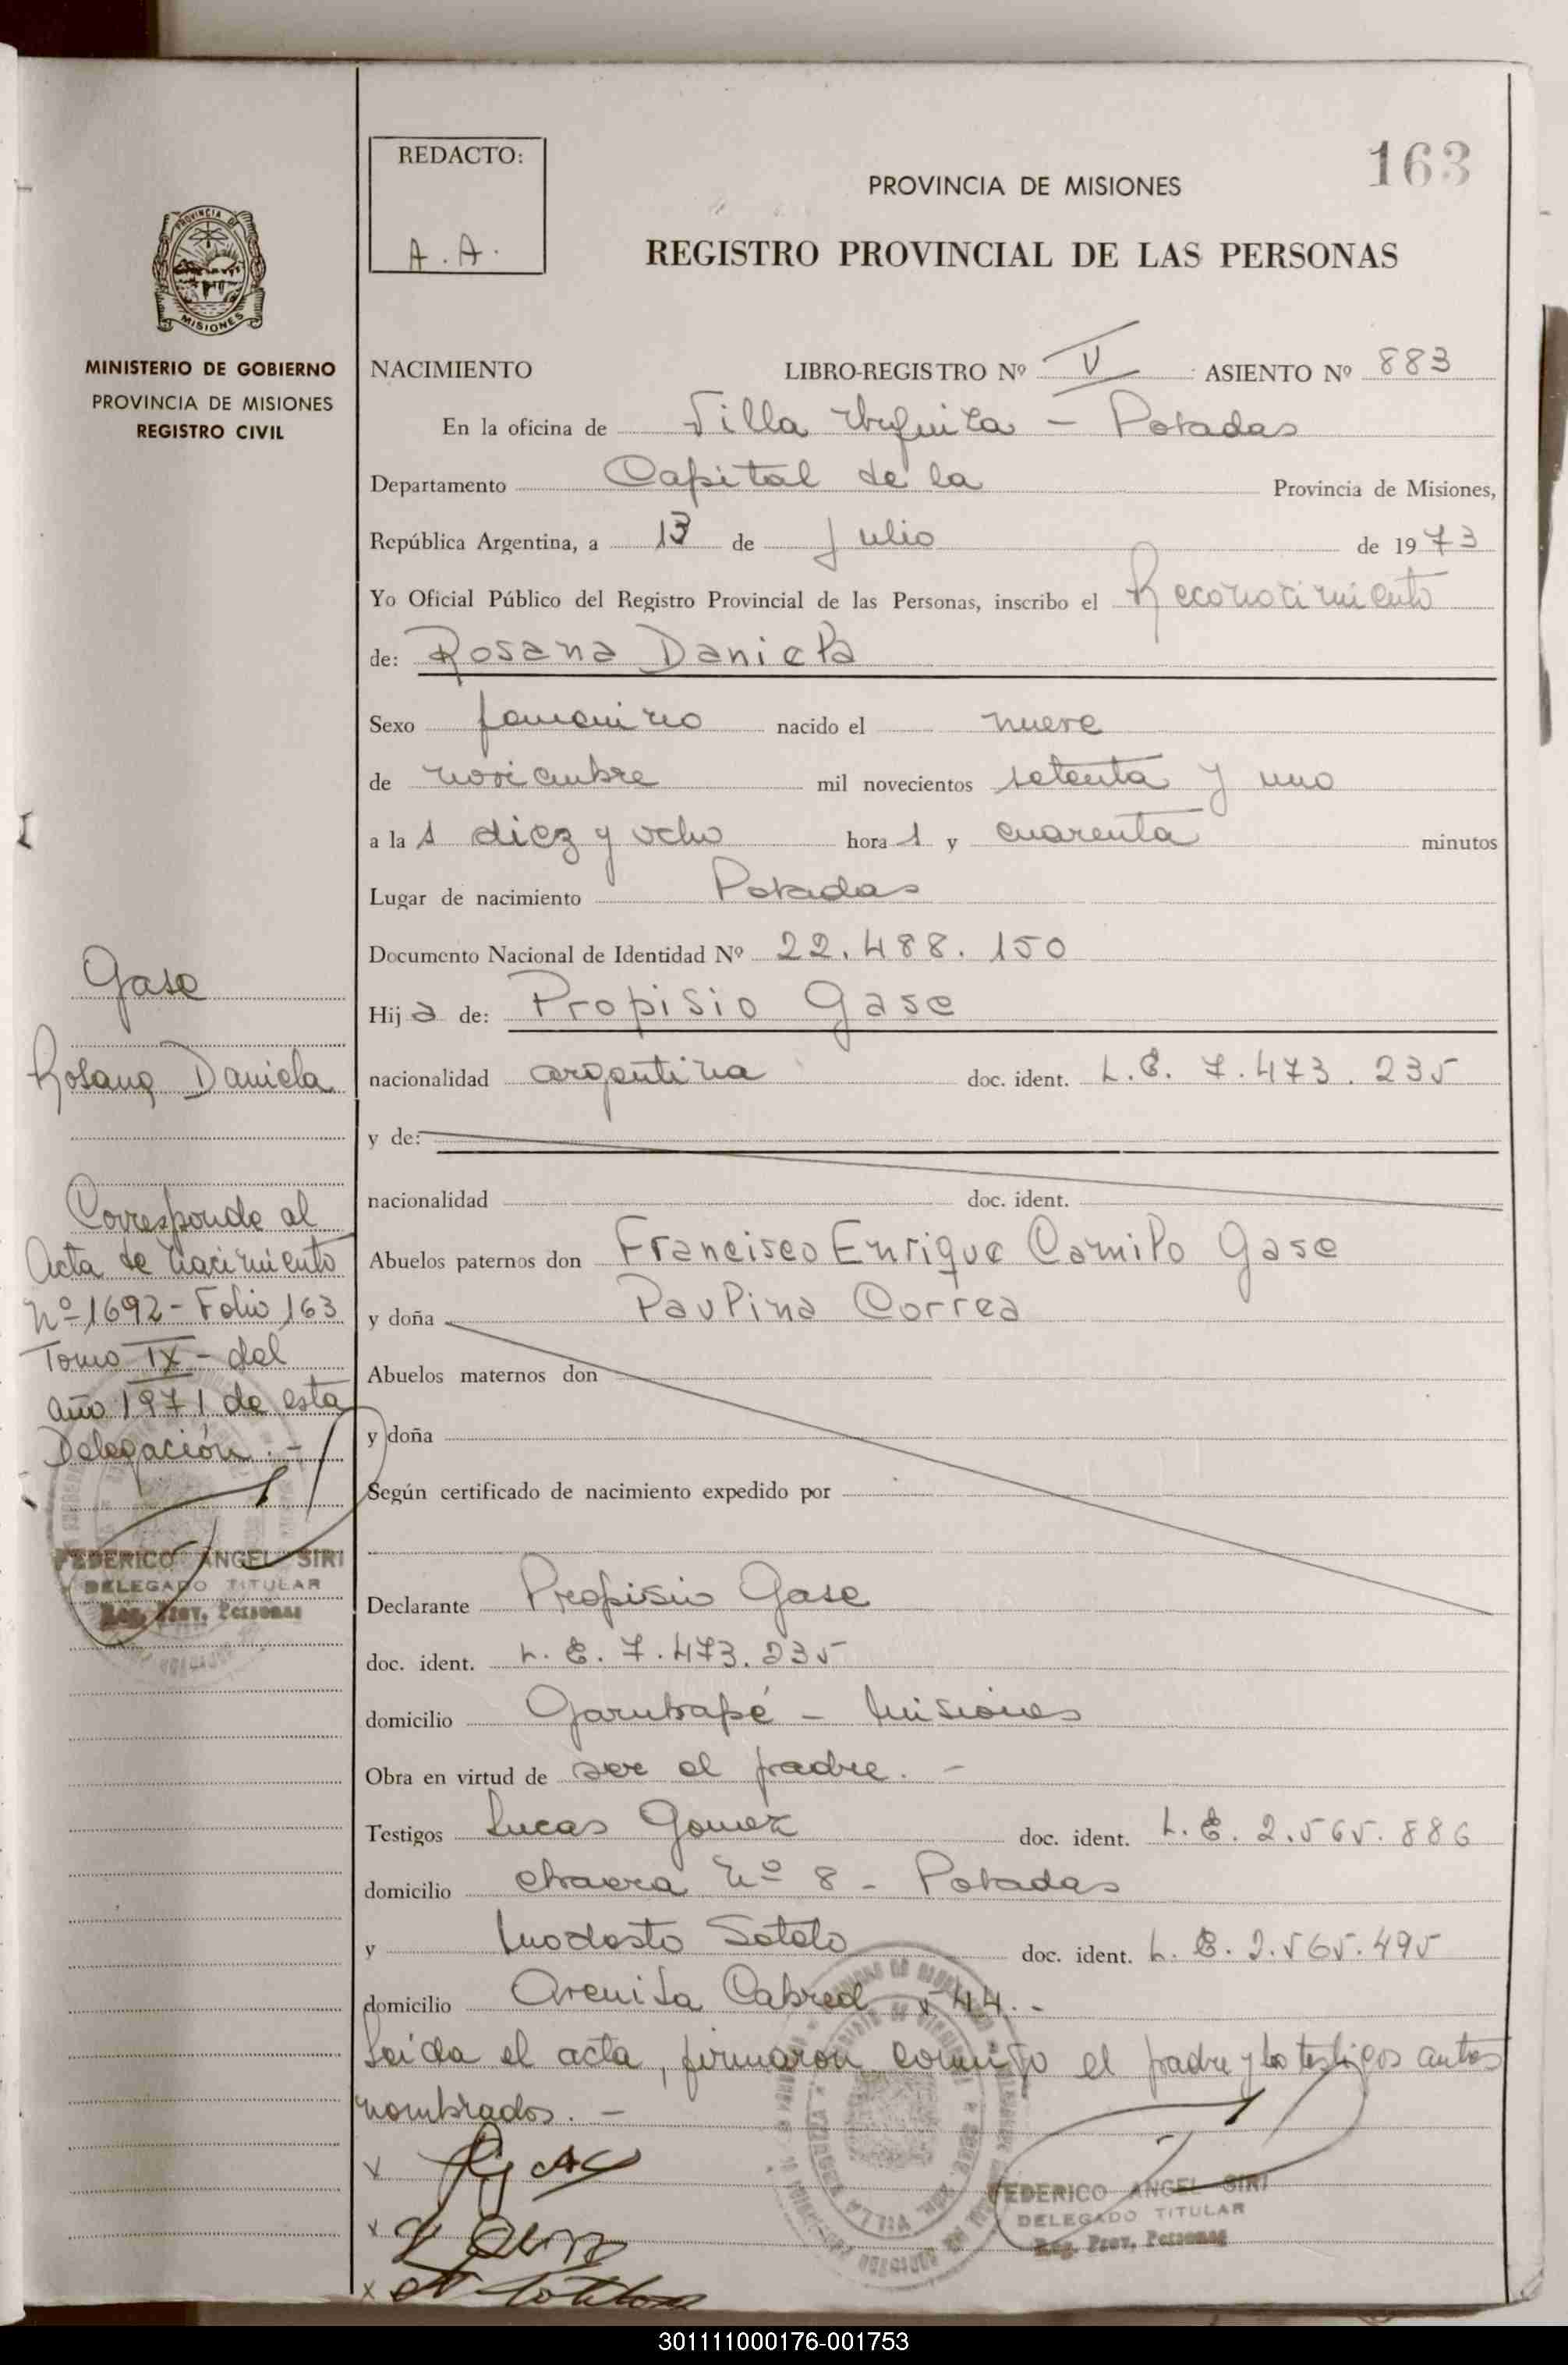 163
REDACTO:
A.A.
PROVINCIA DE MISIONES
REGISTRO PROVINCIAL DE LAS PERSONAS
PROVINCIA DE
MISIONES
MINISTERIO DE GOBIERNO
PROVINCIA DE MISIONES
REGISTRO CIVIL
NACIMIENTO LIBRO-REGISTRO Nº V ASIENTO Nº 883
En la oficina de Villa Urquiza - Posadas
Departamento Capital de la Provincia de Misiones,
República Argentina, a 13 de Julio de 1973
Yo Oficial Público del Registro Provincial de las Personas, inscribo el Reconocimiento
de: Rosana Daniela
Sexo femenino nacido el nueve
de noviembre mil novecientos setenta y uno
a las diez y ocho horas y cuarenta minutos
Lugar de nacimiento Posadas
Documento Nacional de Identidad Nº 22.488.150
Hija de: Propisio Gase
nacionalidad argentina doc. ident. L.E. 7.473.235
y de:
nacionalidad doc. ident.
Abuelos paternos don Francisco Enrique Camilo Gase
y doña Paulina Correa
Abuelos maternos don
y doña
Según certificado de nacimiento expedido por
Declarante Propisio Gase
doc. ident. L.E. 7.473.235
domicilio Garuhapé - Misiones
Obra en virtud de ser el padre. -
Testigos Lucas Gomez doc. ident. L.E. 2.565.886
domicilio chacra Nº 8 - Posadas
y Modesto Sotelo doc. ident. L.E. 2.565.495
domicilio Avenida Cabred 44. -
Leida el acta, firmaron conmigo el padre y los testigos antes
nombrados. -
FEDERICO ANGEL SIRI
DELEGADO TITULAR
Reg. Prov. Personas
Gase
Rosana Daniela
Corresponde al
Acta de nacimiento
Nº 1692 - Folio 163
Tomo IX - del
año 1971 de esta
Delegación. -
FEDERICO ANGEL SIRI
DELEGADO TITULAR
Reg. Prov. Personas
301111000176-001753